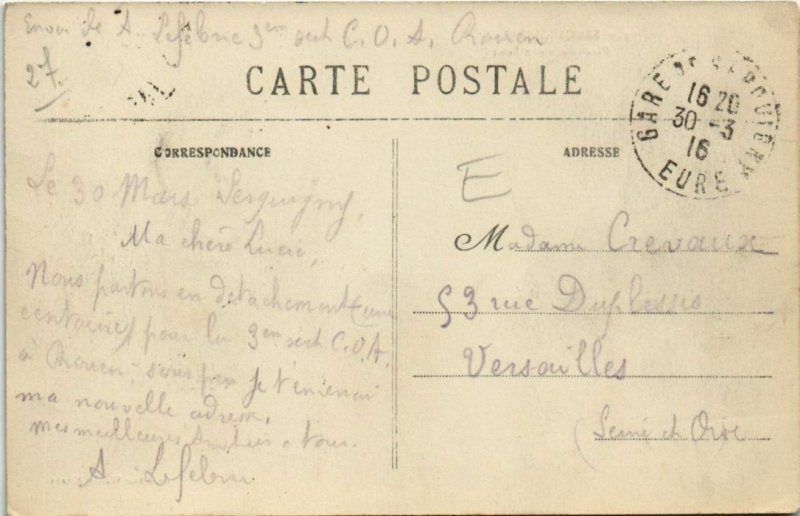 Envoi de A. Lefebvre 3em sect C.O.A. Rouen
27
CARTE POSTALE
GARE DE SERQUIGNY
16 20
30 - 3
16
EURE
CORRESPONDANCE
ADRESSE
E
Le 30 Mars Serquigny,
Ma chere Lucie,
Nous partons en detachement (une
centaine) pour la 3em sect C.O.A.
à Rouen, sous peu je t'enverrai
ma nouvelle adresse,
mes meilleures amitiés a tous.
A. Lefebvre
Madame Crevaux
53 rue Duplessis
Versailles
(Seine et Oise